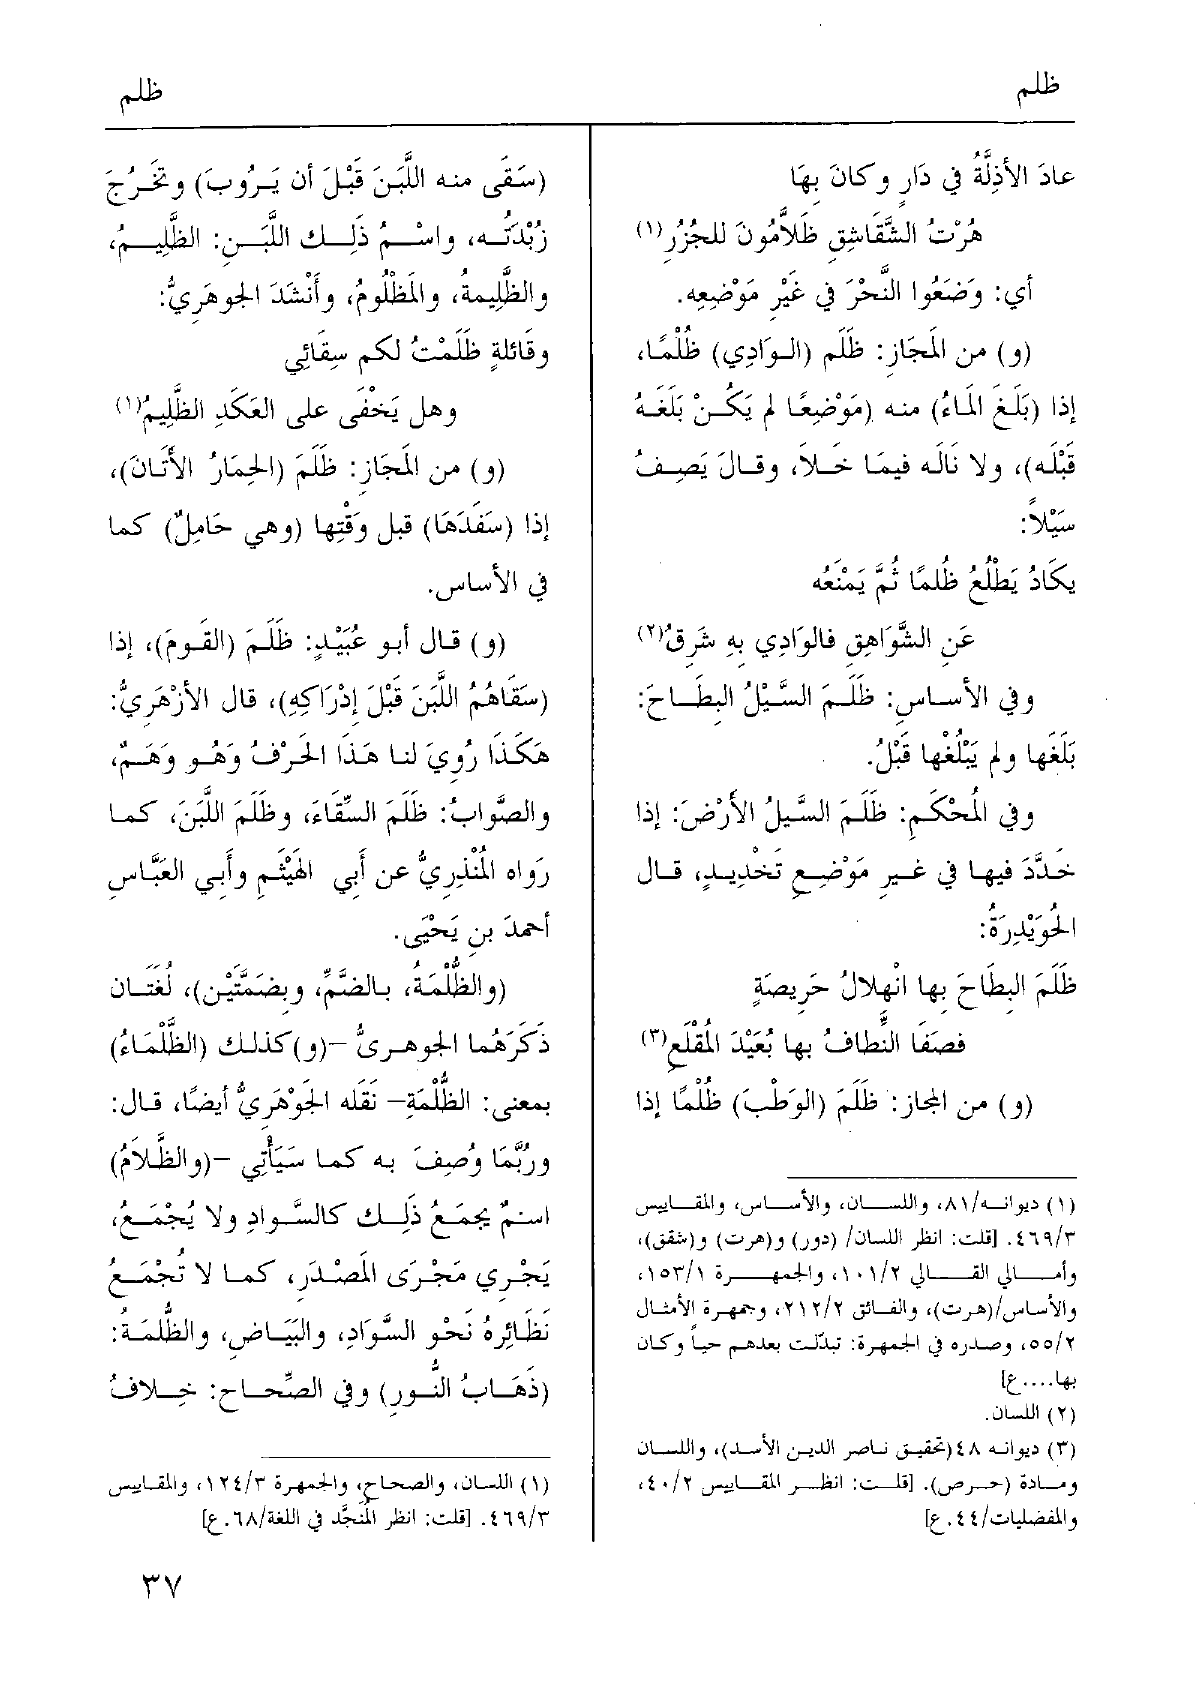 ظلم
ظلم
عادَ الأذِلَّةُ في دَارٍ وكانَ بِهَا
هُرْتُ الشَّقَاشِقِ ظَلاَّمُونَ للجُزُرِ(١)
أي: وَضَعُوا النَّحْرَ في غَيْرِ مَوْضِعِه.
(و) من المَجَازِ: ظَلَم (الوَادِي) ظُلْمًا،
إذا (بَلَغ المَاءُ) منه (مَوْضِعًا لم يَكُنْ بَلَغَهُ
قَبْلَه)، ولا نَالَه فيمَا خَلاَ، وقالَ يَصِفُ
سَيْلاً:
يكَادُ يَطْلُعُ ظُلمًا ثُمَّ يَمْنَعُه
عَنِ الشَّوَاهِقِ فالوَادِي بِهِ شَرِقُ(٢)
وفي الأساسِ: ظَلَمَ السَّيْلُ البِطَاحَ:
بَلَغَها ولم يَبْلُغْها قَبْلُ.
وفي المُحْكَمِ: ظَلَمَ السَّيلُ الأرْضَ: إذا
خَدَّدَ فيها في غيرِ مَوْضِعِ تَخْدِيدٍ، قال
الحُوَيْدِرَةُ:
ظَلَمَ البِطَاحَ بها انْهِلالُ حَرِيصَةٍ
فصَفَا النِّطافُ بها بُعَيْدَ المُقْلَعِ(٣)
(و) من المجاز: ظَلَمَ (الوَطْبَ) ظُلْمًا إذا
(١) ديوانه/٨١، واللسان، والأساس، والمقاييس
٤٦٩/٣. [قلت: انظر اللسان/ (دور) و(هرت) و(شقق)،
وأمالي القالي ١٠١/٢، والجمهرة ١٥٣/١،
والأساس/(هرت)، والفائق ٢١٢/٢، وجمهرة الأمثال
٥٥/٢، وصدره في الجمهرة: تبدّلت بعدهم حياً وكان
بها....ع]
(٢) اللسان.
(٣) ديوانه ٤٨(تحقيق ناصر الدين الأسد)، واللسان
ومادة (حرص). [قلت: انظر المقاييس ٤٠/٢،
والمفضليات/٤٤.ع]
(سَقَى منه اللَّبَنَ قَبْلَ أن يَرُوبَ) وتَخْرُجَ
زُبْدَتُه، واسْمُ ذَلِك اللَّبَنِ: الظَّلِيمُ،
والظَّلِيمةُ، والمَظْلُومُ، وأَنْشَدَ الجوهَرِيُّ:
وقَائلةٍ ظَلَمْتُ لكم سِقَائِي
وهل يَخْفَى على العَكَدِ الظَّلِيمُ(١)
(و) من المَجَازِ: ظَلَمَ (الحِمَارُ الأَتَانَ)،
إذا (سَفَدَهَا) قبل وَقْتِها (وهي حَامِلٌ) كما
في الأساس.
(و) قال أبو عُبَيْدٍ: ظَلَمَ (القَومَ)، إذا
(سَقَاهُمُ اللَّبَنَ قَبْلَ إدْرَاكِهِ)، قال الأزْهَرِيُّ:
هَكَذَا رُوِيَ لنا هَذَا الحَرْفُ وَهُو وَهَمٌ،
والصَّوابُ: ظَلَمَ السِّقَاءَ، وظَلَمَ اللَّبَنَ، كما
رَواه المُنْذِرِيُّ عن أَبِي الهَيْثَمِ وأَبِي العَبَّاسِ
أحمدَ بنِ يَحْيَى.
(والظُّلْمَةُ، بالضَّمِّ، وبِضَمَّتَيْنِ)، لُغَتَان
ذَكَرَهُما الجوهريُّ –(و)كذلك (الظَّلْمَاءُ)
بمعنى: الظُّلْمَةِ– نَقَله الجَوْهَرِيُّ أيضًا، قال:
ورُبَّمَا وُصِفَ به كما سَيَأْتِي –(والظَّلاَمُ)
اسمٌ يجمَعُ ذَلِك كالسَّوادِ ولا يُجْمَعُ،
يَجْرِي مَجْرَى المَصْدَرِ، كما لا تُجْمَعُ
نَظَائِرُهُ نَحْو السَّوَادِ، والبَيَاضِ، والظُّلمَة:
(ذَهَابُ النُّورِ) وفي الصِّحاحِ: خِلافُ
(١) اللسان، والصحاح، والجمهرة ١٢٤/٣، والمقاييس
٤٦٩/٣. [قلت: انظر المُنَجَّد في اللغة/٦٨.ع]
٣٧